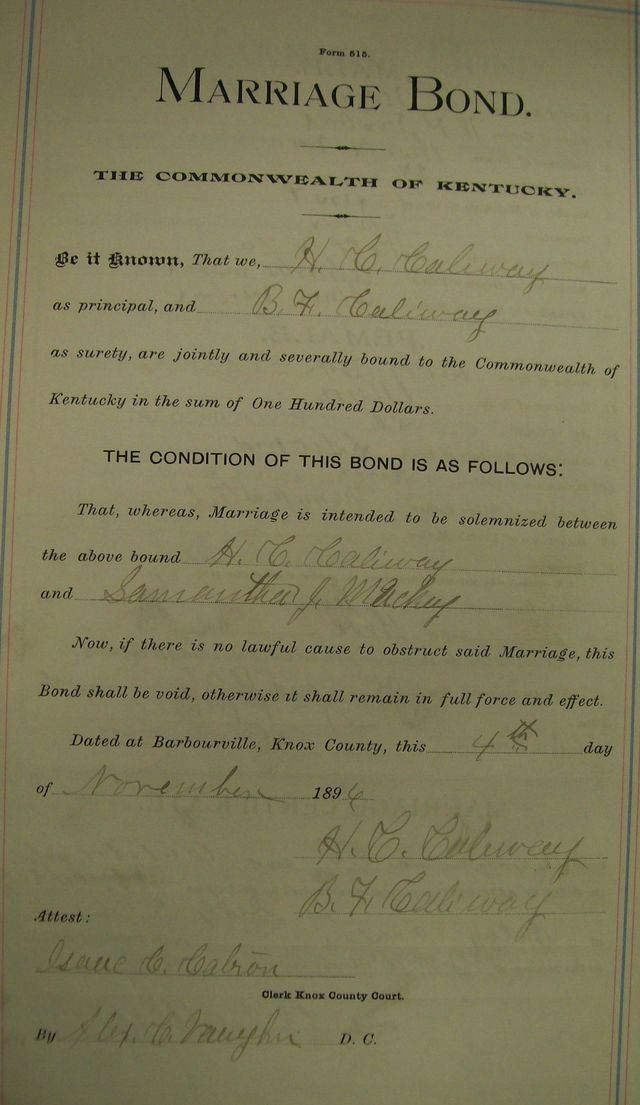 Form 515.
MARRIAGE BOND.
THE COMMONWEALTH OF KENTUCKY.
Be it Known, That we, H. C. Caliway
as principal, and B. F. Caliway
as surety, are jointly and severally bound to the Commonwealth of
Kentucky in the sum of One Hundred Dollars.
THE CONDITION OF THIS BOND IS AS FOLLOWS:
That, whereas, Marriage is intended to be solemnized between
the above bound H. C. Caliway
and Samantha J. Mackey
Now, if there is no lawful cause to obstruct said Marriage, this
Bond shall be void, otherwise it shall remain in full force and effect.
Dated at Barbourville, Knox County, this 4th day
of November 189
H. C. Caliway
B. F. Caliway
Attest:
Isaac C.
Clerk Knox County Court.
By Alex. C. Vaughn D. C.